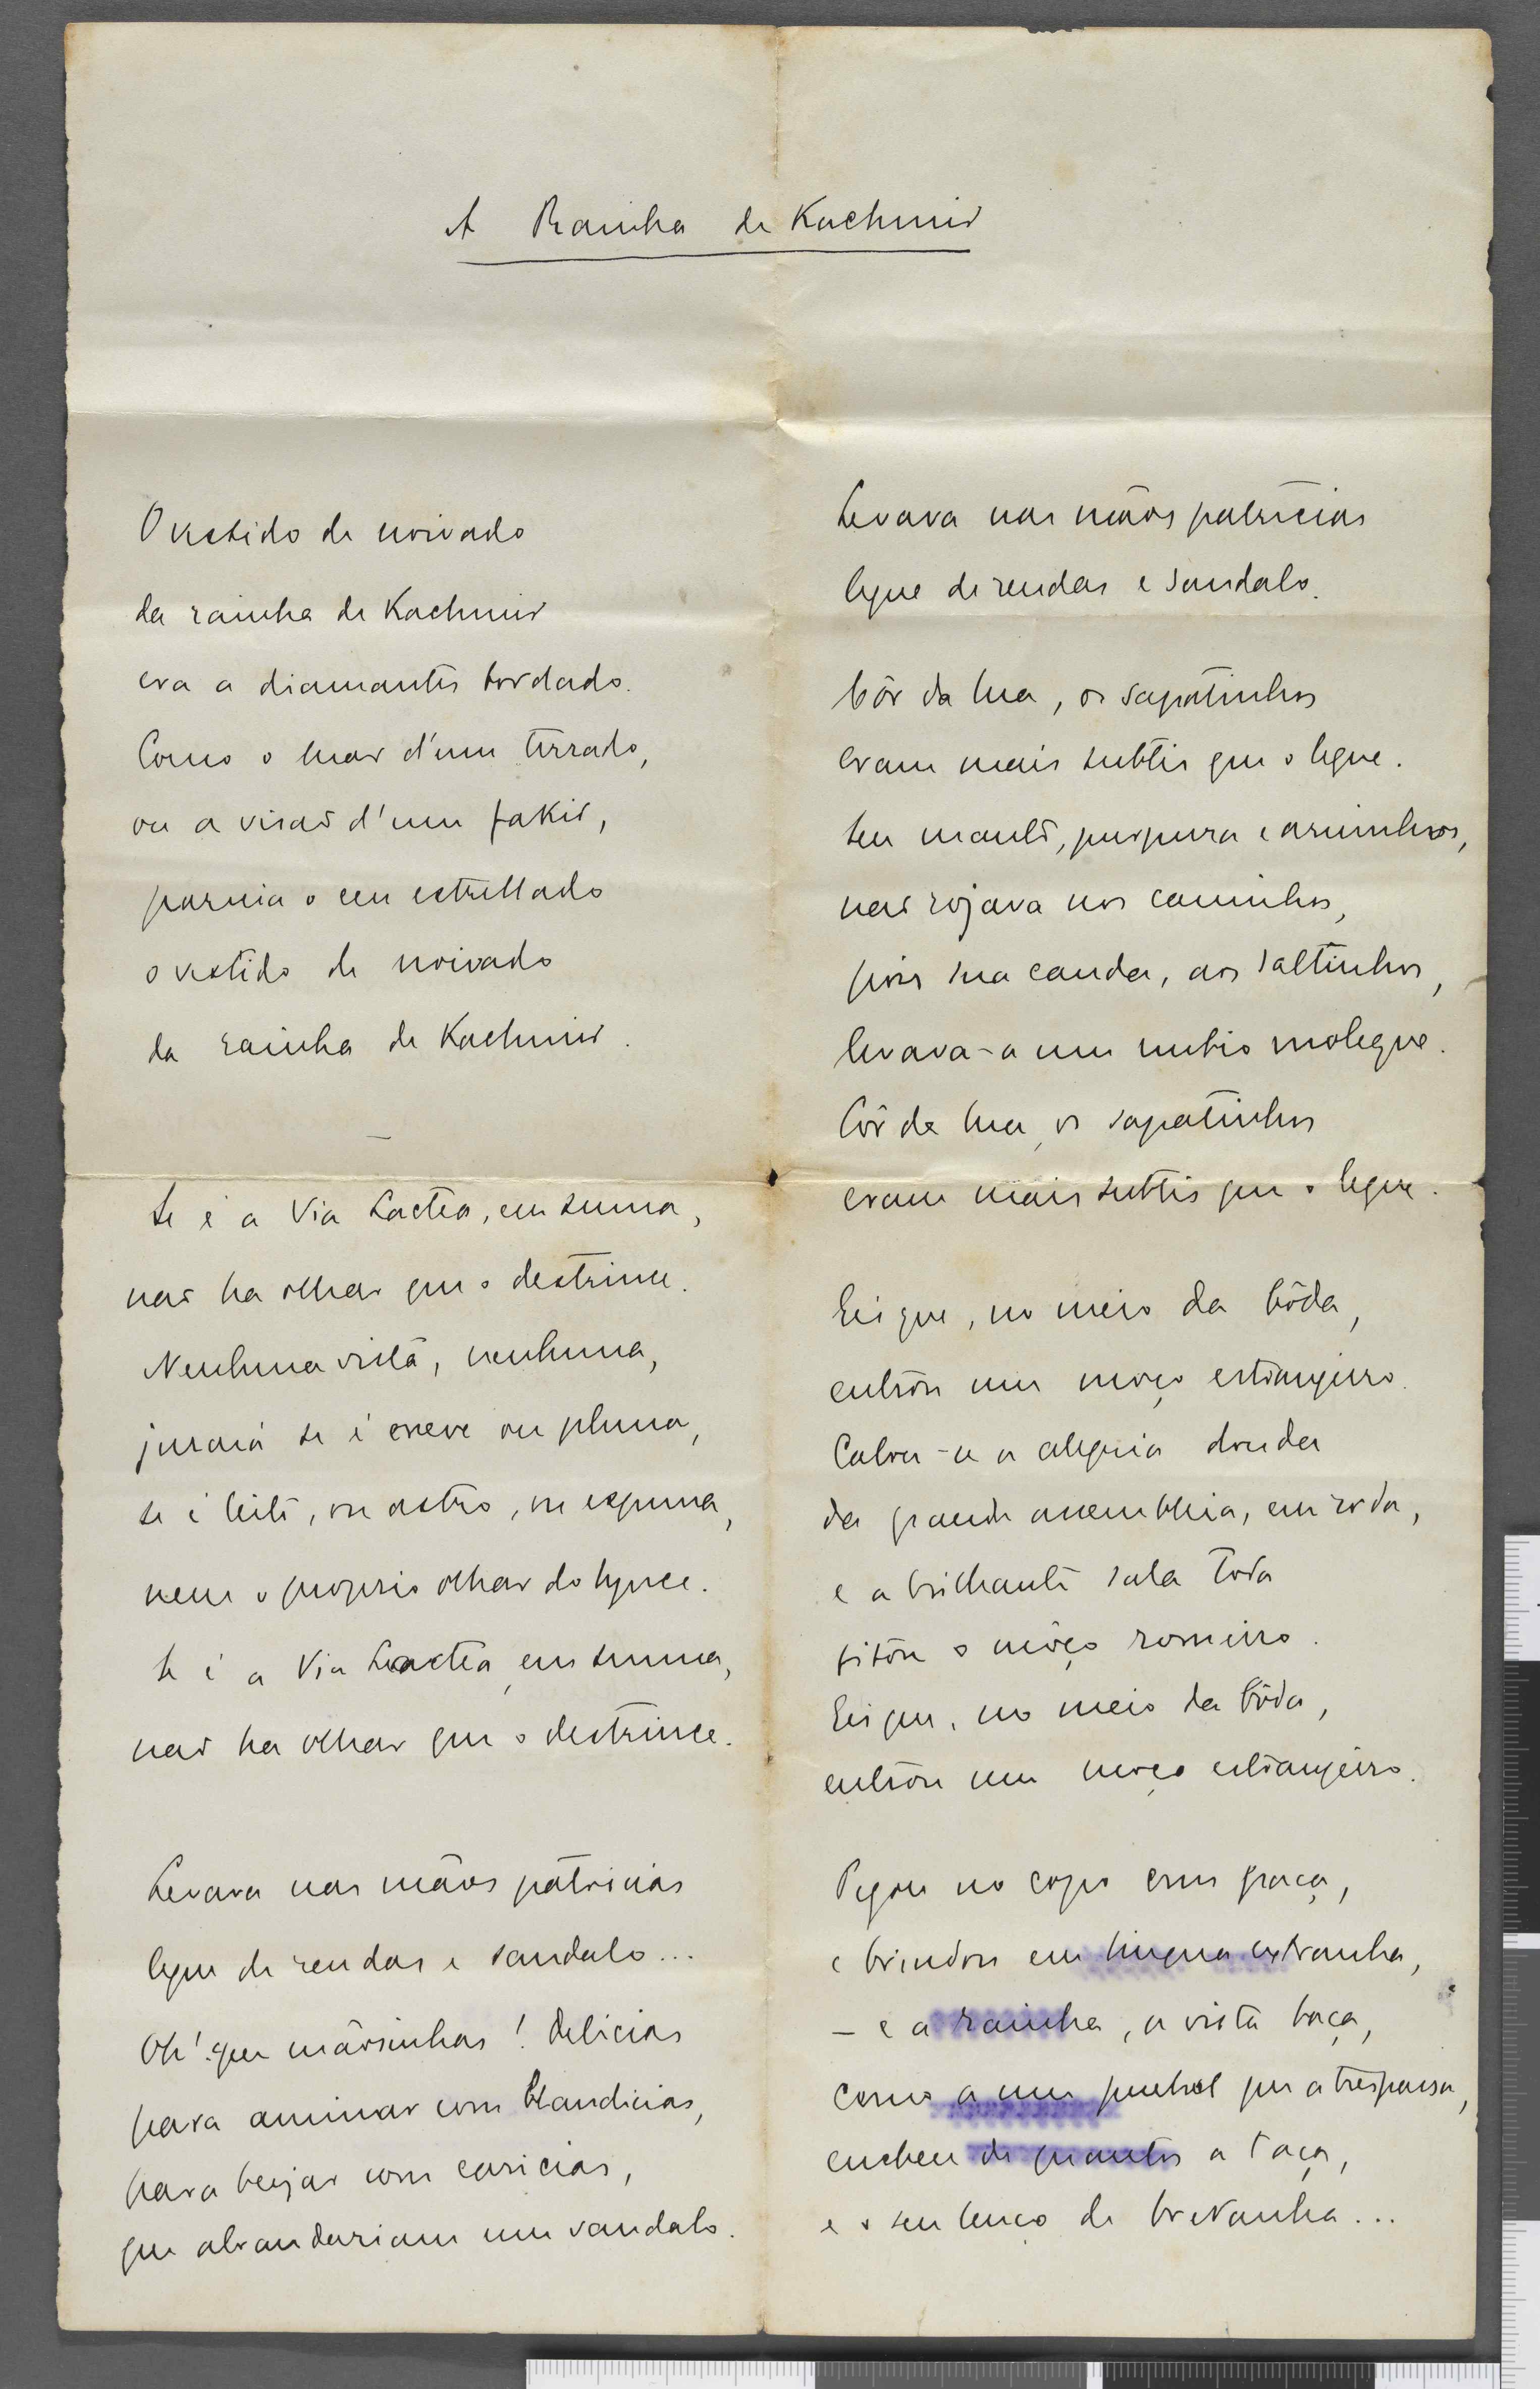 A Rainha de Kachmir
O vestido de noivado
da rainha de Kachmir
era a diamantes bordado.
Como o luar d'um terrado,
ou a visão d'um fakir,
parecia o ceu estrellado
o vestido de noivado
da rainha de Kachmir.
Se é a Via Lactea, em summa,
não ha olhar que o destrince.
Nenhuma vista, nenhuma,
jurará se é neve ou pluma,
se é leite, ou astro, ou espuma,
nem o proprio olhar do lynce.
Se é a Via Lactea, em summa,
não ha olhar que o destrince.
Levava nas mãos patricias
leque de rendas e sandalo...
Oh! que mãosinhas! delicias
para animar com blandicias,
para beijar com caricias,
que abrandariam um vandalo.
Levava nas mãos patricias
leque de rendas e sandalo.
Côr da lua, os sapatinhos
eram mais subtis que o leque.
Seu manto, purpura e arminhos,
não rojava nos caminhos,
pois sua cauda, aos saltinhos,
levava-a um nubio moleque.
Côr da lua, os sapatinhos
eram mais subtis que o leque.
Eis que, no meio da bôda,
entrou um moço estrangeiro.
Calou-se a alegria douda
da grande assembleia, em roda,
e a brilhante sala toda
fitou o môço romeiro.
Eis que, no meio da bôda,
entrou um moço estrangeiro.
Pegou no copo com graça,
e brindou em lingua extranha,
— e a rainha, a vista baça,
como a um punhal que a trespassa,
encheu de prantos a taça,
e o seu lenço de bretanha...